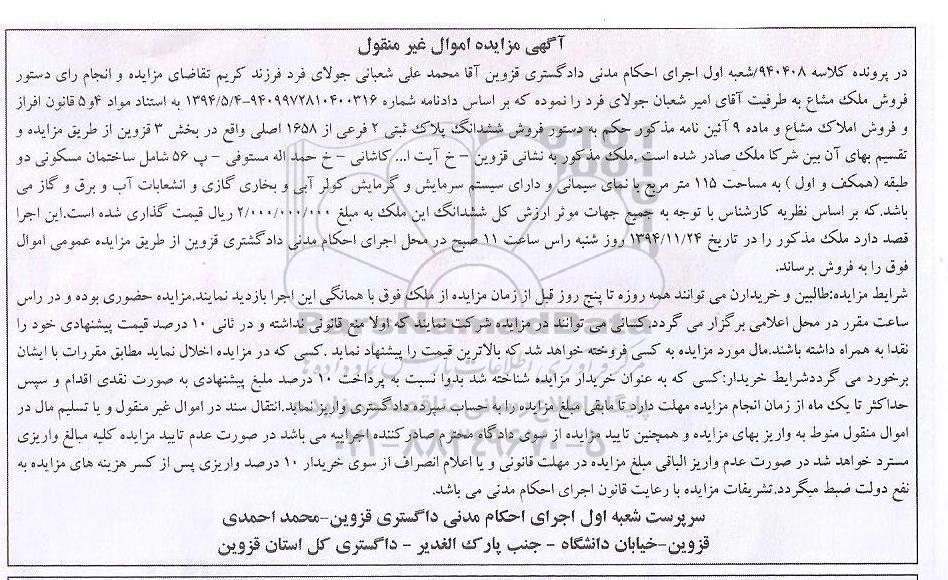 آگهی مزایده اموال غیر منقول
در پرونده کلاسه ۹۴۰۴۰۸/شعبه اول اجرای احکام مدنی دادگستری قزوین آقا محمد علی شعبانی جولای فرد فرزند کریم تقاضای مزایده و انجام رای دستور
فروش ملک مشاع به طرفیت آقای امیر شعبان جولای فرد را نموده که بر اساس دادنامه شماره ۹۴۰۹۹۷۲۸۱۰۴۰۰۳۱۶-۱۳۹۴/۵/۴ به استناد مواد ۴و۵ قانون افراز
و فروش املاک مشاع و ماده ۹ آئین نامه مذکور حکم به دستور فروش ششدانگ پلاک ثبتی ۲ فرعی از ۱۶۵۸ اصلی واقع در بخش ۳ قزوین از طریق مزایده و
تقسیم بهای آن بین شرکا ملک صادر شده است .ملک مذکور به نشانی قزوین – خ آیت ا... کاشانی – خ حمد اله مستوفی – پ ۵۶ شامل ساختمان مسکونی دو
طبقه (همکف و اول ) به مساحت ۱۱۵ متر مربع با نمای سیمانی و دارای سیستم سرمایش و گرمایش کولر آبی و بخاری گازی و انشعابات آب و برق و گاز می
باشد.که بر اساس نظریه کارشناس با توجه به جمیع جهات موثر ارزش کل ششدانگ این ملک به مبلغ ۲/۰۰۰/۰۰۰/۰۰۰ ریال قیمت گذاری شده است.این اجرا
قصد دارد ملک مذکور را در تاریخ ۱۳۹۴/۱۱/۲۴ روز شنبه راس ساعت ۱۱ صبح در محل اجرای احکام مدنی دادگشتری قزوین از طریق مزایده عمومی اموال
فوق را به فروش برساند.
شرایط مزایده:طالبین و خریدارن می توانند همه روزه تا پنج روز قبل از زمان مزایده از ملک فوق با همانگی این اجرا بازدید نمایند.مزایده حضوری بوده و در راس
ساعت مقرر در محل اعلامی برگزار می گردد.کسانی می توانند در مزایده شرکت نمایند که اولا منع قانونی نداشته و در ثانی ۱۰ درصد قیمت پیشنهادی خود را
نقدا به همراه داشته باشند.مال مورد مزایده به کسی فروخته خواهد شد که بالاترین قیمت را پیشنهاد نماید .کسی که در مزایده اخلال نماید مطابق مقررات با ایشان
برخورد می گرددشرایط خریدار:کسی که به عنوان خریدار مزایده شناخته شد بدوا نسبت به پرداخت ۱۰ درصد ملبغ پیشنهادی به صورت نقدی اقدام و سپس
حداکثر تا یک ماه از زمان انجام مزایده مهلت دارد تا مابقی مبلغ مزایده را به حساب سپرده دادگستری واریز نماید.انتقال سند در اموال غیر منقول و یا تسلیم مال در
اموال منقول منوط به واریز بهای مزایده و همچنین تایید مزایده از سوی دادگاه محترم صادر کننده اجراییه می باشد در صورت عدم تایید مزایده کلیه مبالغ واریزی
مسترد خواهد شد در صورت عدم واریز الباقی مبلغ مزایده در مهلت قانونی و یا اعلام انصراف از سوی خریدار ۱۰ درصد واریزی پس از کسر هزینه های مزایده به
نفع دولت ضبط میگردد.تشریفات مزایده با رعایت قانون اجرای احکام مدنی می باشد.
سرپرست شعبه اول اجرای احکام مدنی داگستری قزوین-محمد احمدی
قزوین-خیابان دانشگاه - جنب پارک الغدیر - داگستری کل استان قزوین